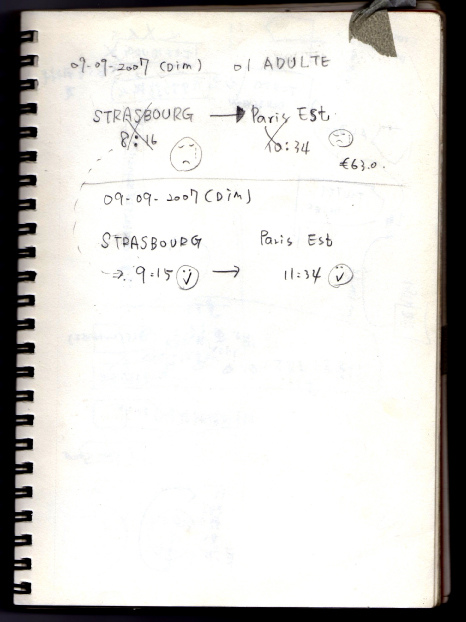 09-09-2007 (Dim) 01 ADULTE
STRASBOURG → Paris Est
8:16 10:34
€63.0.
09-09-2007 (Dim)
STRASBOURG Paris Est
→ 9:15 → 11:34